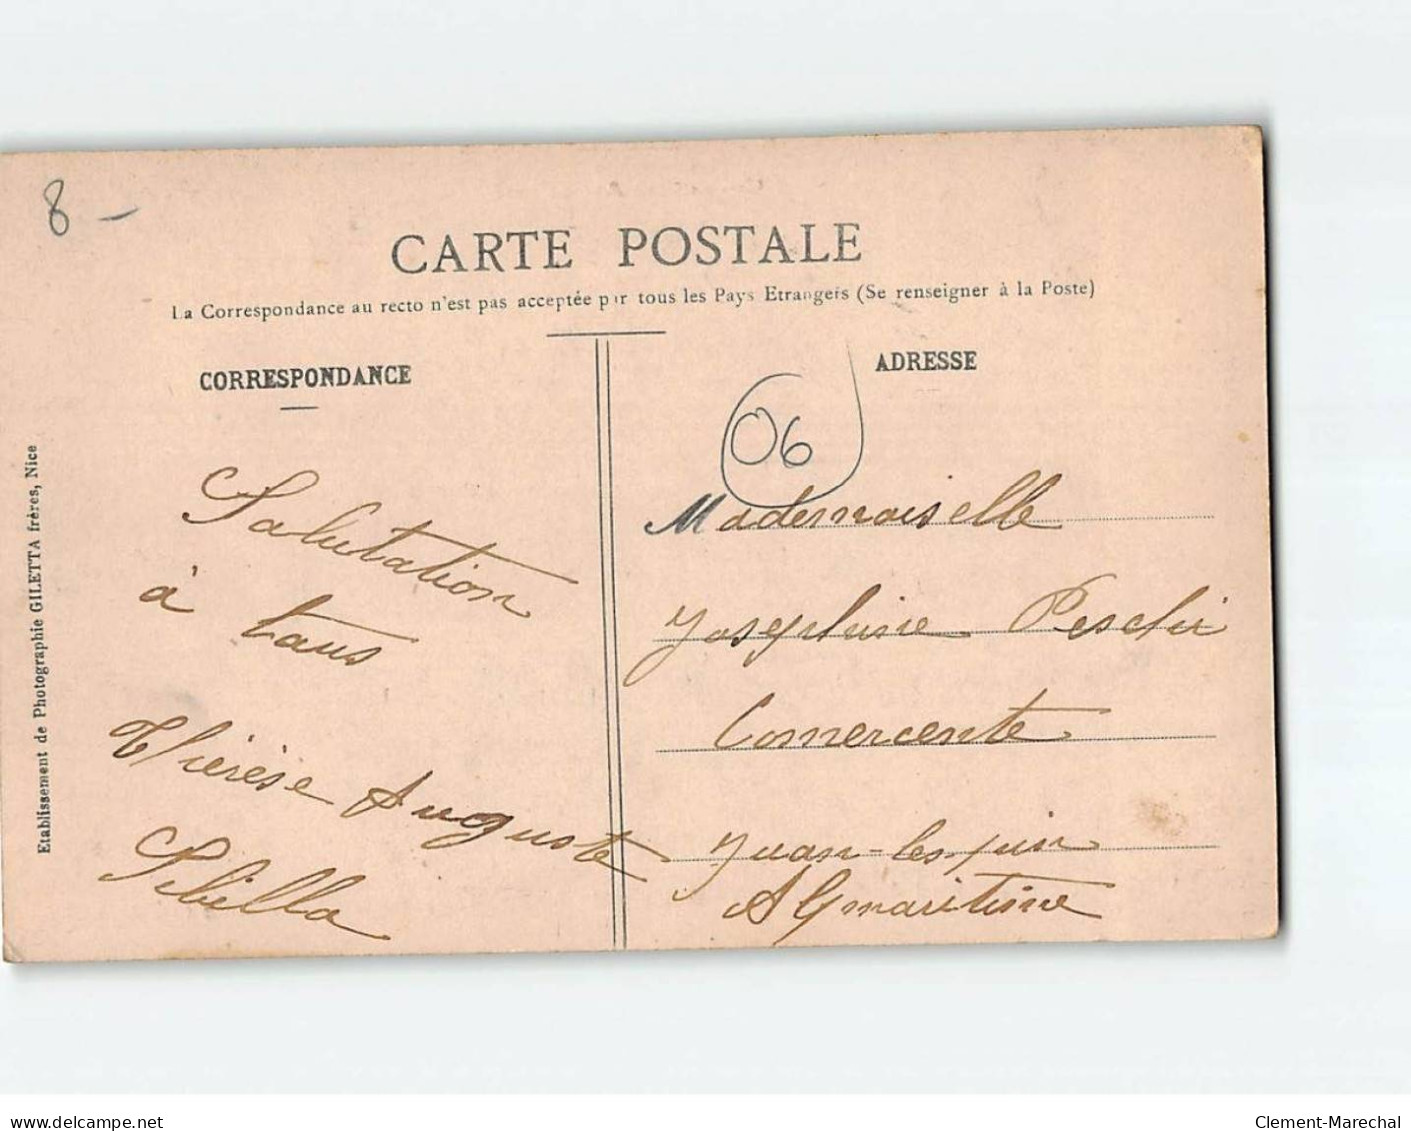 8 -
CARTE POSTALE
La Correspondance au recto n'est pas acceptée par tous les Pays Etrangers (Se renseigner à la Poste)
CORRESPONDANCE
Salutation
à tous
Thérèse Auguste
Sibilla
ADRESSE
06
Mademoiselle
Josephine
Comercente
Juan-les-pins
A Maritime
Etablissement de Photographie GILETTA frères, Nice
www.delcampe.net
Clement-Marechal